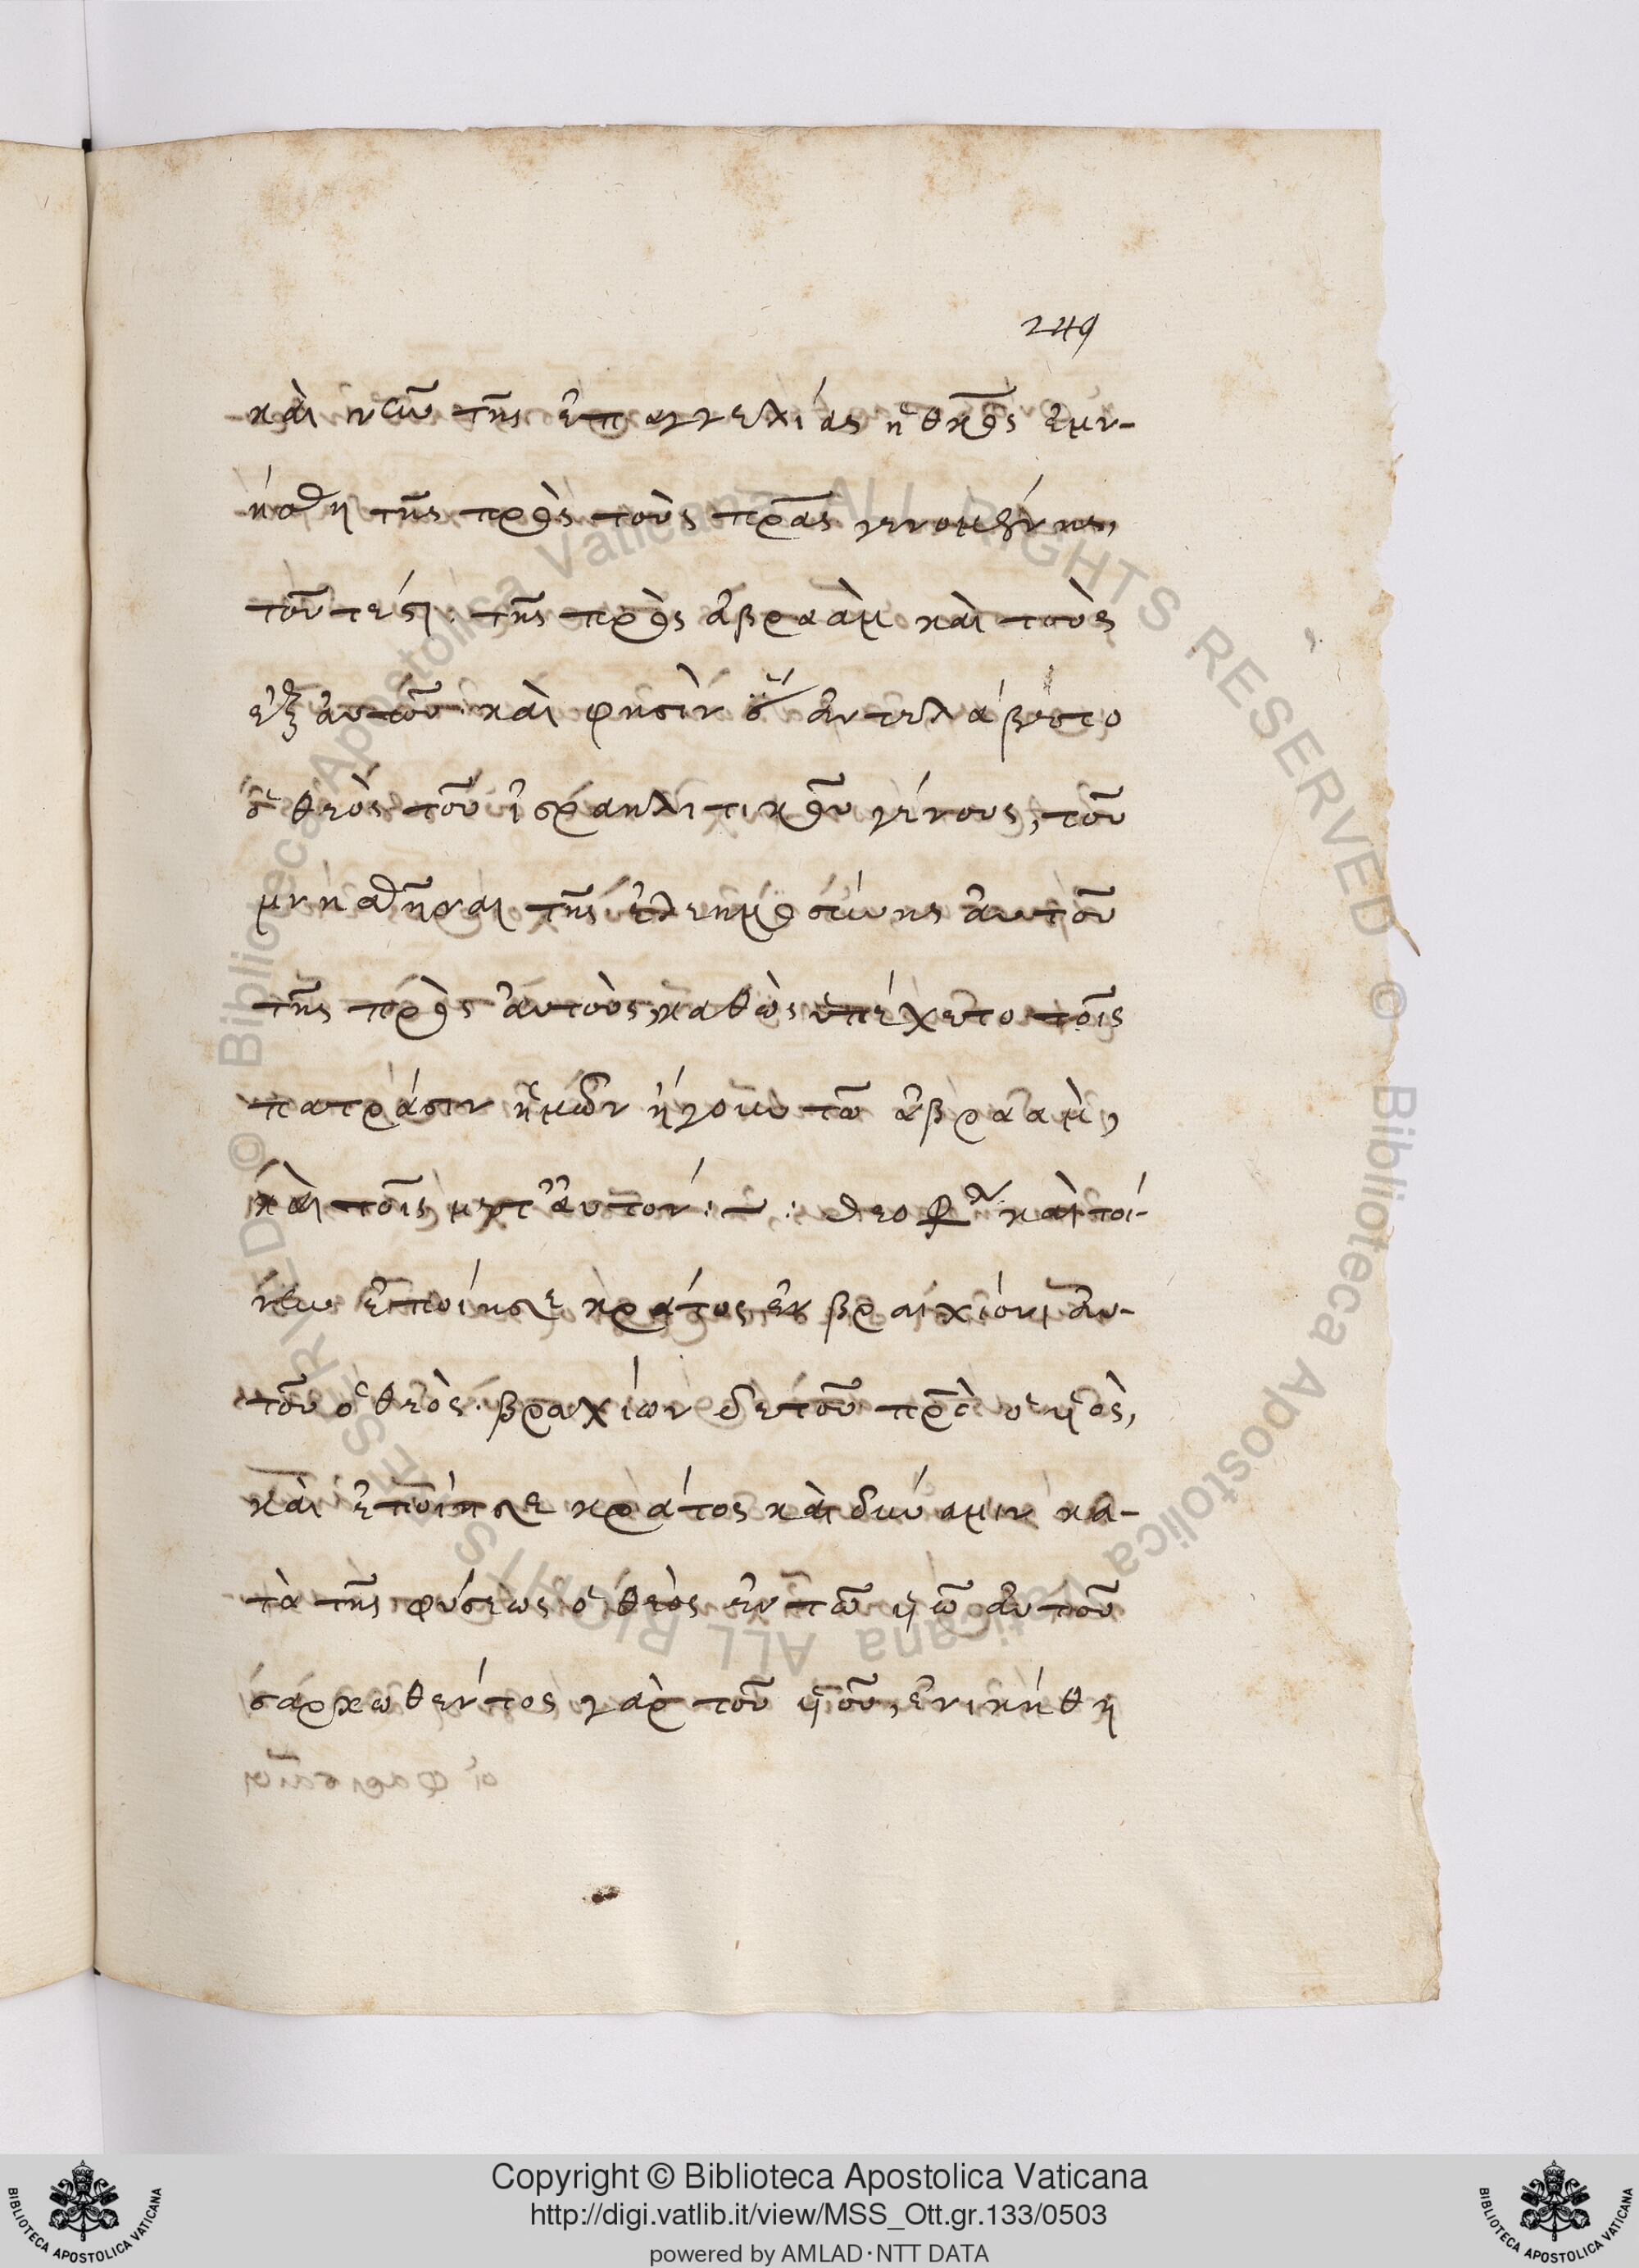 249
καὶ νῦν τῆς ἐπαγγελίας ἡ θκὸς ἐμν-
ήσθη τῆς πρὸς τοὺς πρας γενομένης,
τουτέστι· τῆς πρὸς ἀβραὰμ καὶ τοὺς
ἐξ αυτοῦ· καὶ φησὶν ὅ ἀντελάβετο
ὁ θεὸς τοῦ ἰσραηλιτικοῦ γένους, τοῦ
μνησθῆναι τῆς ἐλεημοσύνης ἀυτοῦ
τῆς πρὸς ἀυτοὺς, καθὼς ὑπέχετο τοῖς
πατράσιν ἡμῶν ἤγουν τῶ ἀβρααμ,
καὶ τοῖς μετ' ἀυτον: ~ : θεοφλ καὶ τοί-
νυν ἐποίησε κράτος ἐν βραχίονι ἀυ-
τοῦ ὁ θεὸς· βραχίων δὲ τοῦ πρς ὁ ὑιὸς,
καὶ ἐποίησε κράτος καὶ δύναμιν κα-
τὰ τῆς φύσεως ὁ θεὸς ἐν τῶ ὑιῶ ἀυτοῦ
σαρκωθέντος γὰρ τοῦ ὑιοῦ, ἐνικήθη
Copyright © Biblioteca Apostolica Vaticana
http://digi.vatlib.it/view/MSS_Ott.gr.133/0503
powered by AMLAD·NTT DATA
BIBLIOTECA APOSTOLICA VATICANA
BIBLIOTECA APOSTOLICA VATICANA
© Biblioteca Apostolica Vaticana ALL RIGHTS RESERVED © Biblioteca Apostolica Vaticana ALL RIGHTS RESERVED